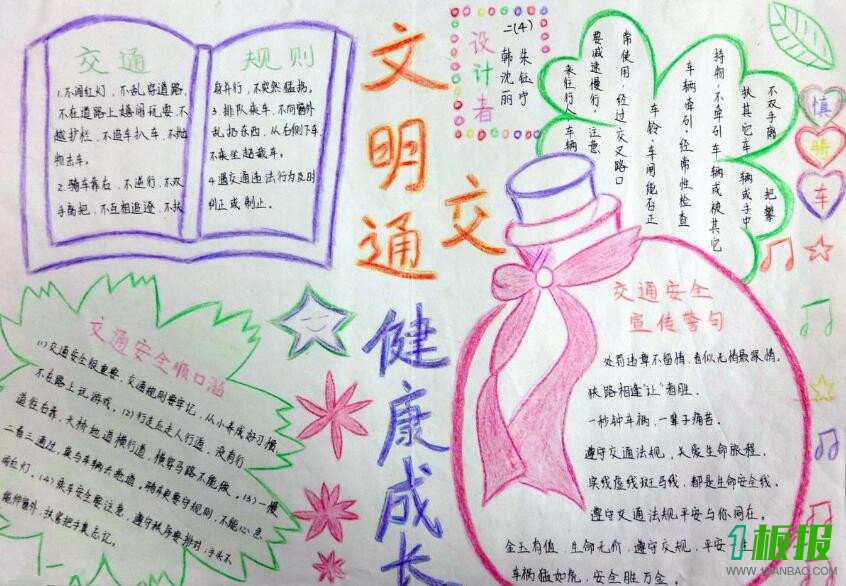 交通 规则
1.不闯红灯,不乱穿道路,
不在道路上嬉闹玩耍,不
越护栏,不追车扒车,不抛
物击车。
2.骑车靠右,不逆行,不双
手离把,不互相追逐,不扶
身并行,不突然猛拐。
3.排队乘车,不向窗外
乱扔东西,从右侧下车
不乘坐超载车。
4.遇交通违法行为及时
纠正或制止。
文明交通
健康成长
设计者
二(4)
朱钰宁
韩沈丽
不双手离把,攀
扶其它车辆或手中
持物,不牵引车辆或被其它
车辆牵引,经常性检查
车铃、车闸能否正
常使用,经过交叉路口
要减速慢行,注意
来往行人、车辆
慎
骑
车
交通安全顺口溜
(1)交通安全很重要,交通规则要牢记,从小养成好习惯,
不在路上玩游戏。(2)行走应走人行道,没有行
道往右靠,天桥地道横行道,横穿马路不能做。(3)一慢
二看三通过,莫与车辆去抢道,骑车更要守规则,不能心急
闯红灯。(4)乘车安全要注意,遵守秩序要排对,手头不
能伸窗外,扶紧把手莫忘记。
交通安全
宣传警句
处罚违章不留情,看似无情最深情。
狭路相逢“让”者胜。
一秒钟车祸,一辈子痛苦。
遵守交通法规,关爱生命旅程。
实线虚线斑马线,都是生命安全线。
遵守交通法规,平安与你同在。
金玉有值,生命无价,遵守交规,平安
车辆猛如虎,安全胜万金。
1板报
WWW.1BANBAO.COM